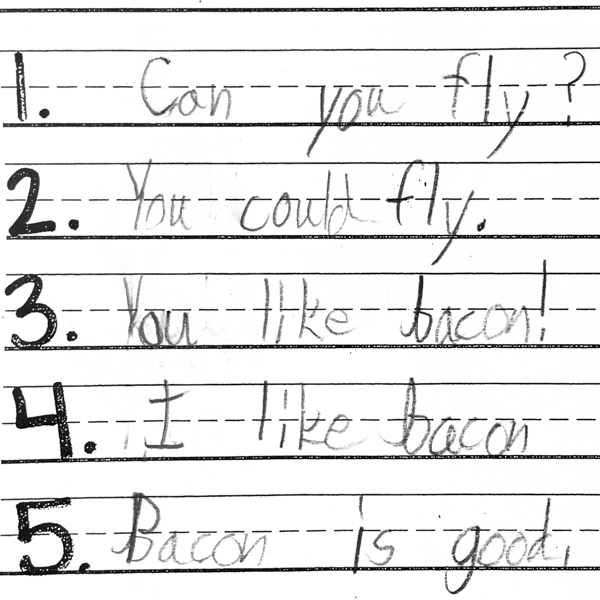 1. Can you fly?
2. You could fly.
3. You like bacon!
4. I like bacon
5. Bacon is good.